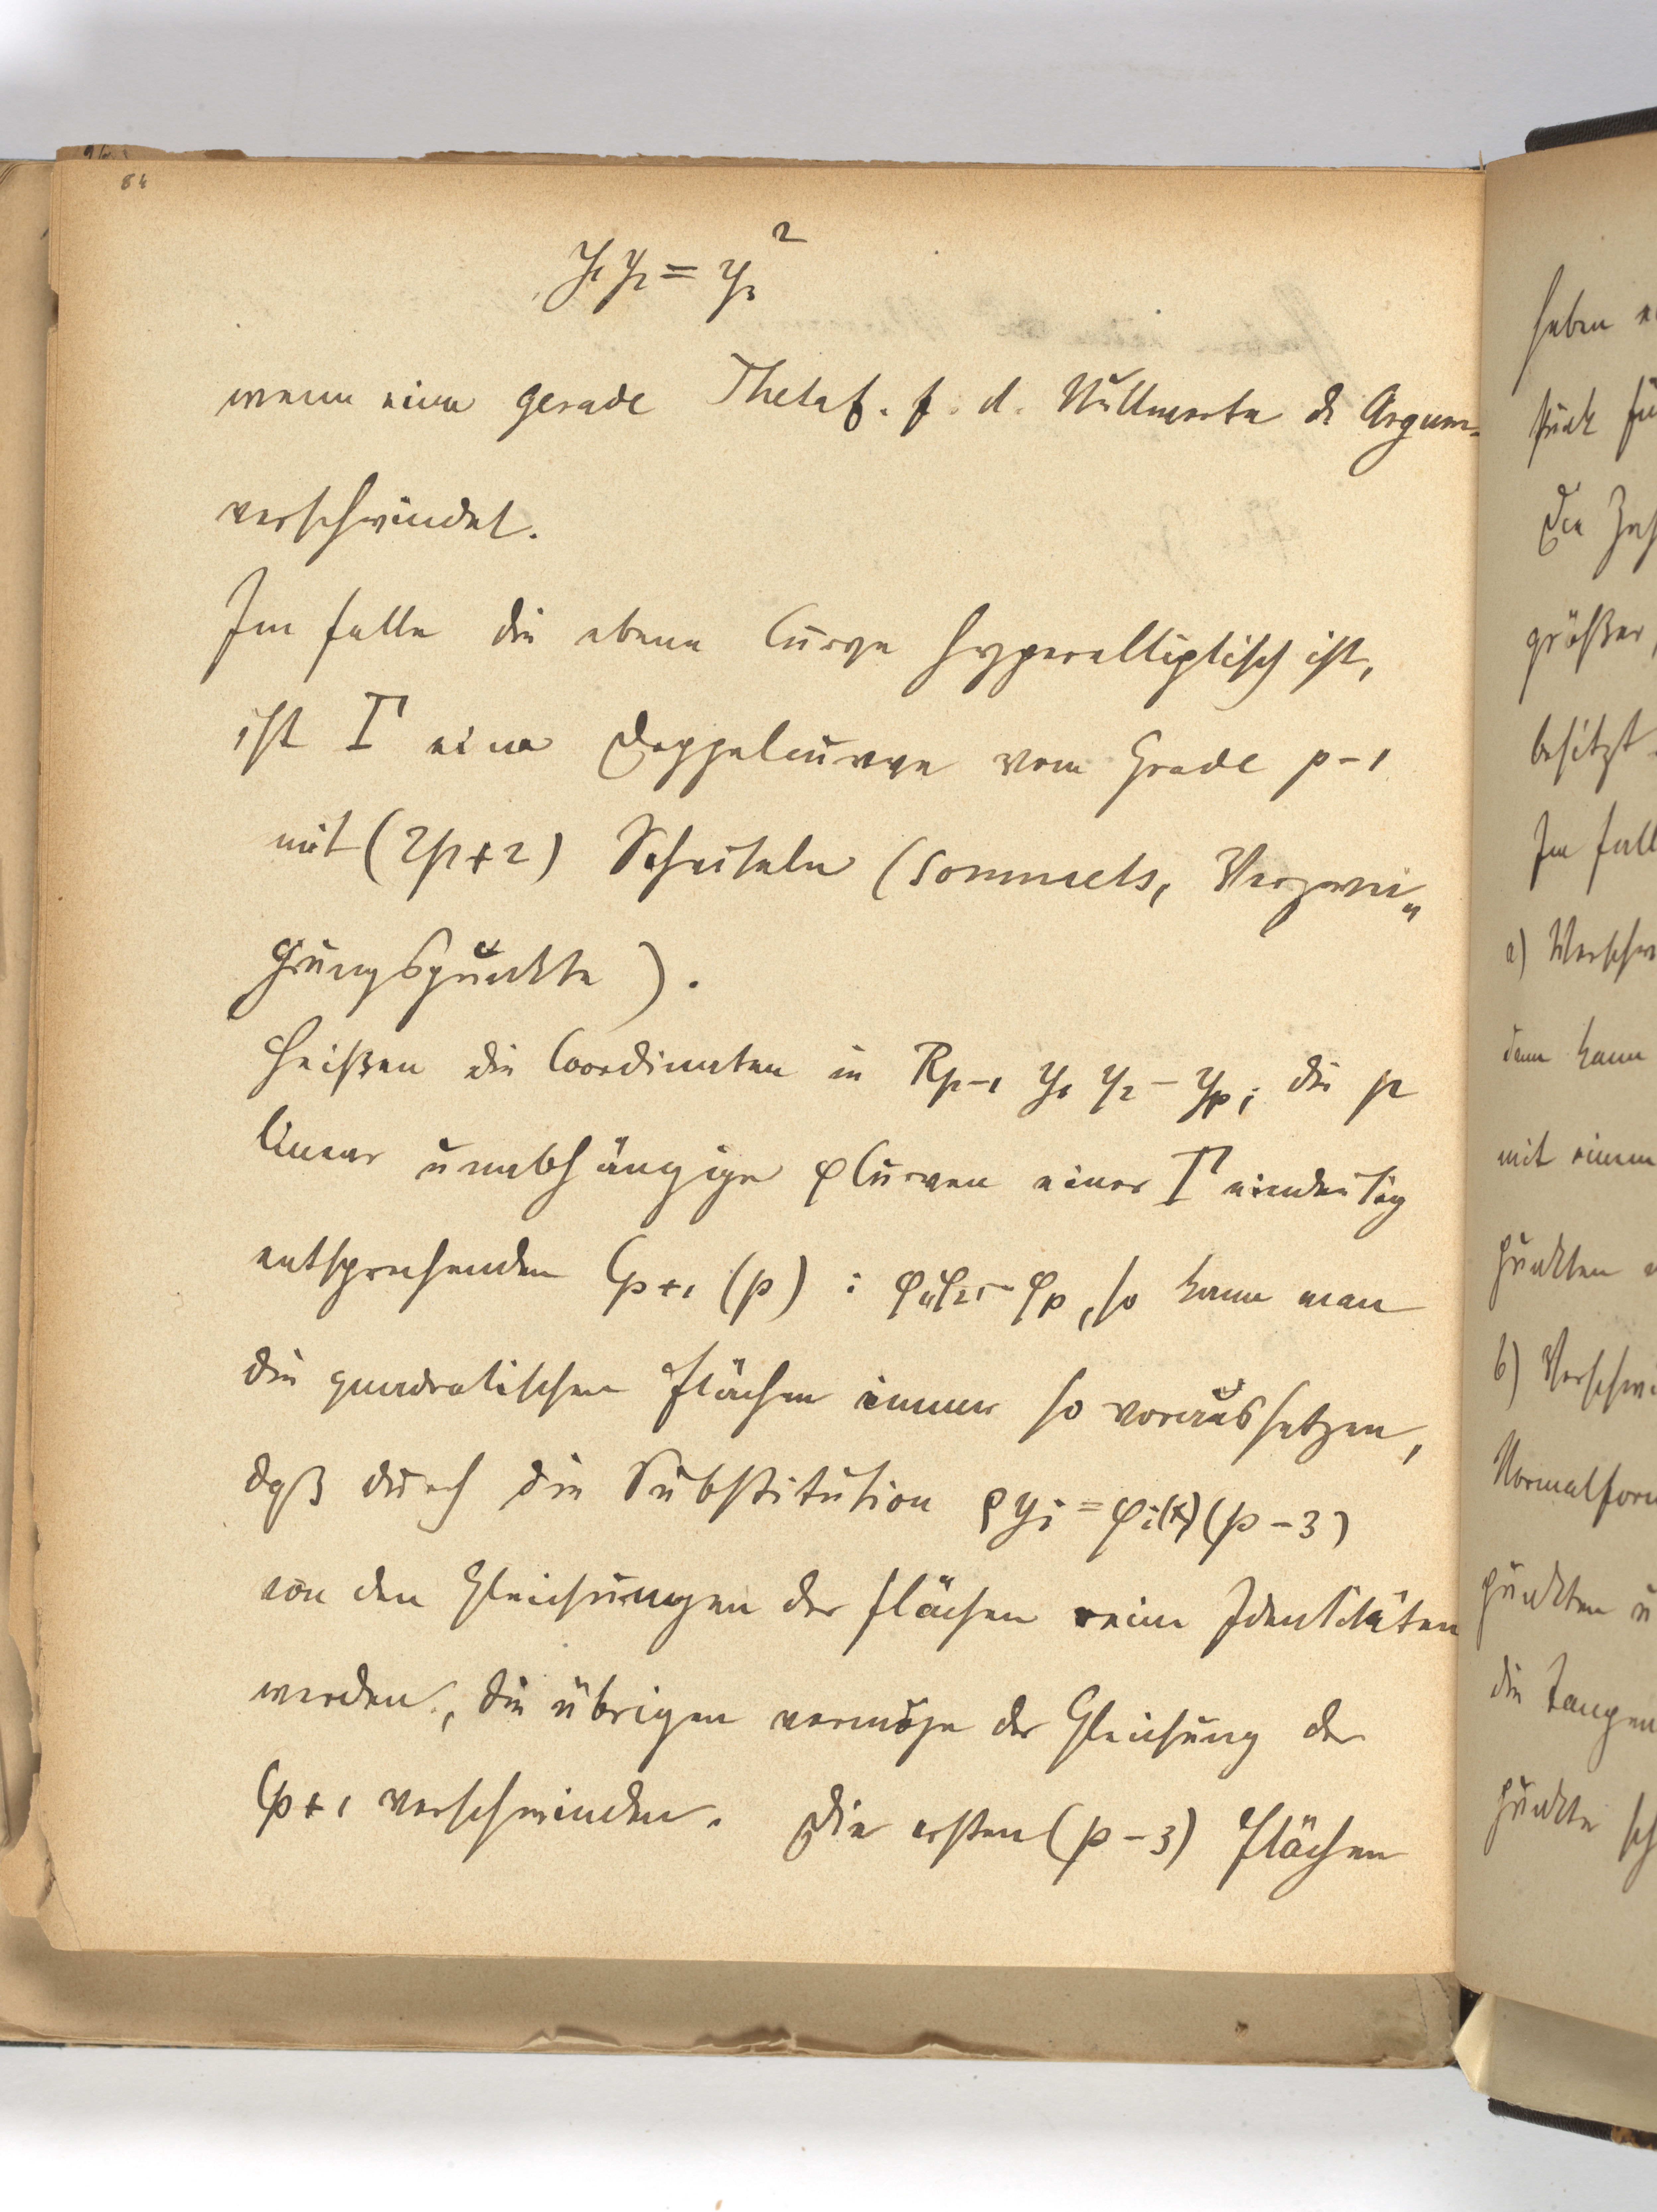 84
y₁ y₂ = y₃²
wenn eine gerade Thetaf. f. d. Nullwerte d. Argum.
verschwindet.
Im Falle die ebene Curve hyperelliptisch ist,
ist Γ eine Doppelcurve vom Grade p-1
mit (2p+2) Scheiteln (sommets, Verzwei„
gungspunkte).
Heißen die Coordinaten in Rp-1 y₁ y₂ - yp, die p
linear unabhängige φCurven einer Γ eindeutig
entsprechenden Cp+1 (p) : φ₁, φ₂, - φp, so kann man
die quadratischen Flächen immer so voraussetzen,
daß durch die Substitution ρyi = φi(x) (p-3)
von den Gleichungen der Flächen reine Identitäten
werden, die übrigen vermöge der Gleichung der
Cp+1 verschwinden. Die ersten (p-3) Flächen
haben
stück
Die
größer,
besitzt.
Im Fall
a)
dann kann
mit einem
punkten
b)
Normalform
punkten u
die
punkte